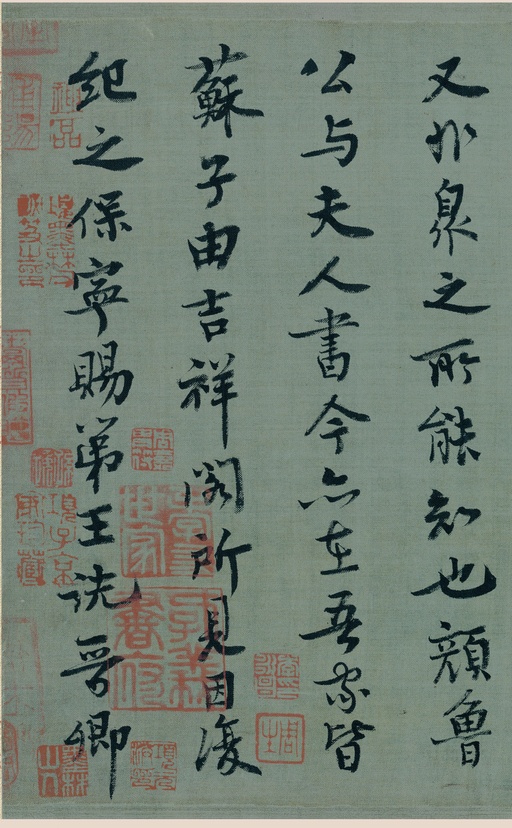 又非衆之所能知也顔魯
公与夫人書今亦在吾家皆
蘇子由吉祥閣所見因復
紀之保寧賜第王詵晋卿
神品